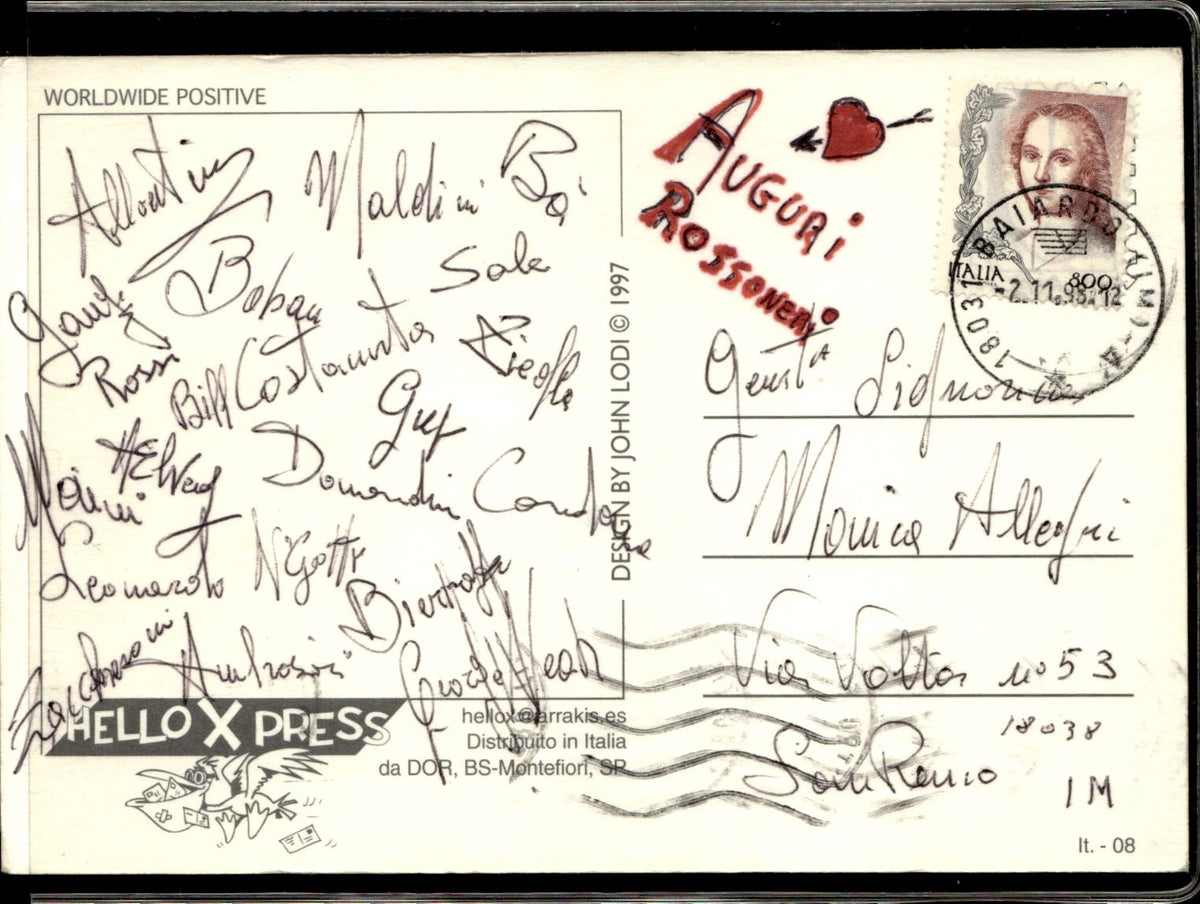 WORLDWIDE POSITIVE
Albertini Maldini Ba
Boban Sala
Ganz
Rossi
Bill Costacurta Ziege
Guly
Helveg
Donandoni
Leonardo N'Gotty
Bierhoff
Zaccheroni Ambrosini George Weah
HELLO X PRESS
hellox@arrakis.es
Distribuito in Italia
da DOR, BS-Montefiori, SP
DESIGN BY JOHN LODI © 1997
AUGURI
ROSSONERI
ITALIA 800
18031 BAIARDO (IM)
-2.11.98.12
Gent.A Signorina
Monica Allegri
Via Volta no 53
18038
SanRemo
IM
It. - 08